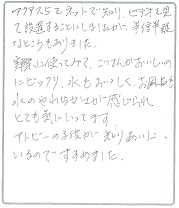 アクアス5とネットで知り、ビデオを見
て設置することにしましたが、半信半疑
なところもありました。
実際に使ってみて、ごはんがおいしいの
にビックリ、水もおいしく、お風呂も
水のやわらかさが感じられ
とても気にいってます。
アトピーの子供が知りあいに
いるのですすめました。